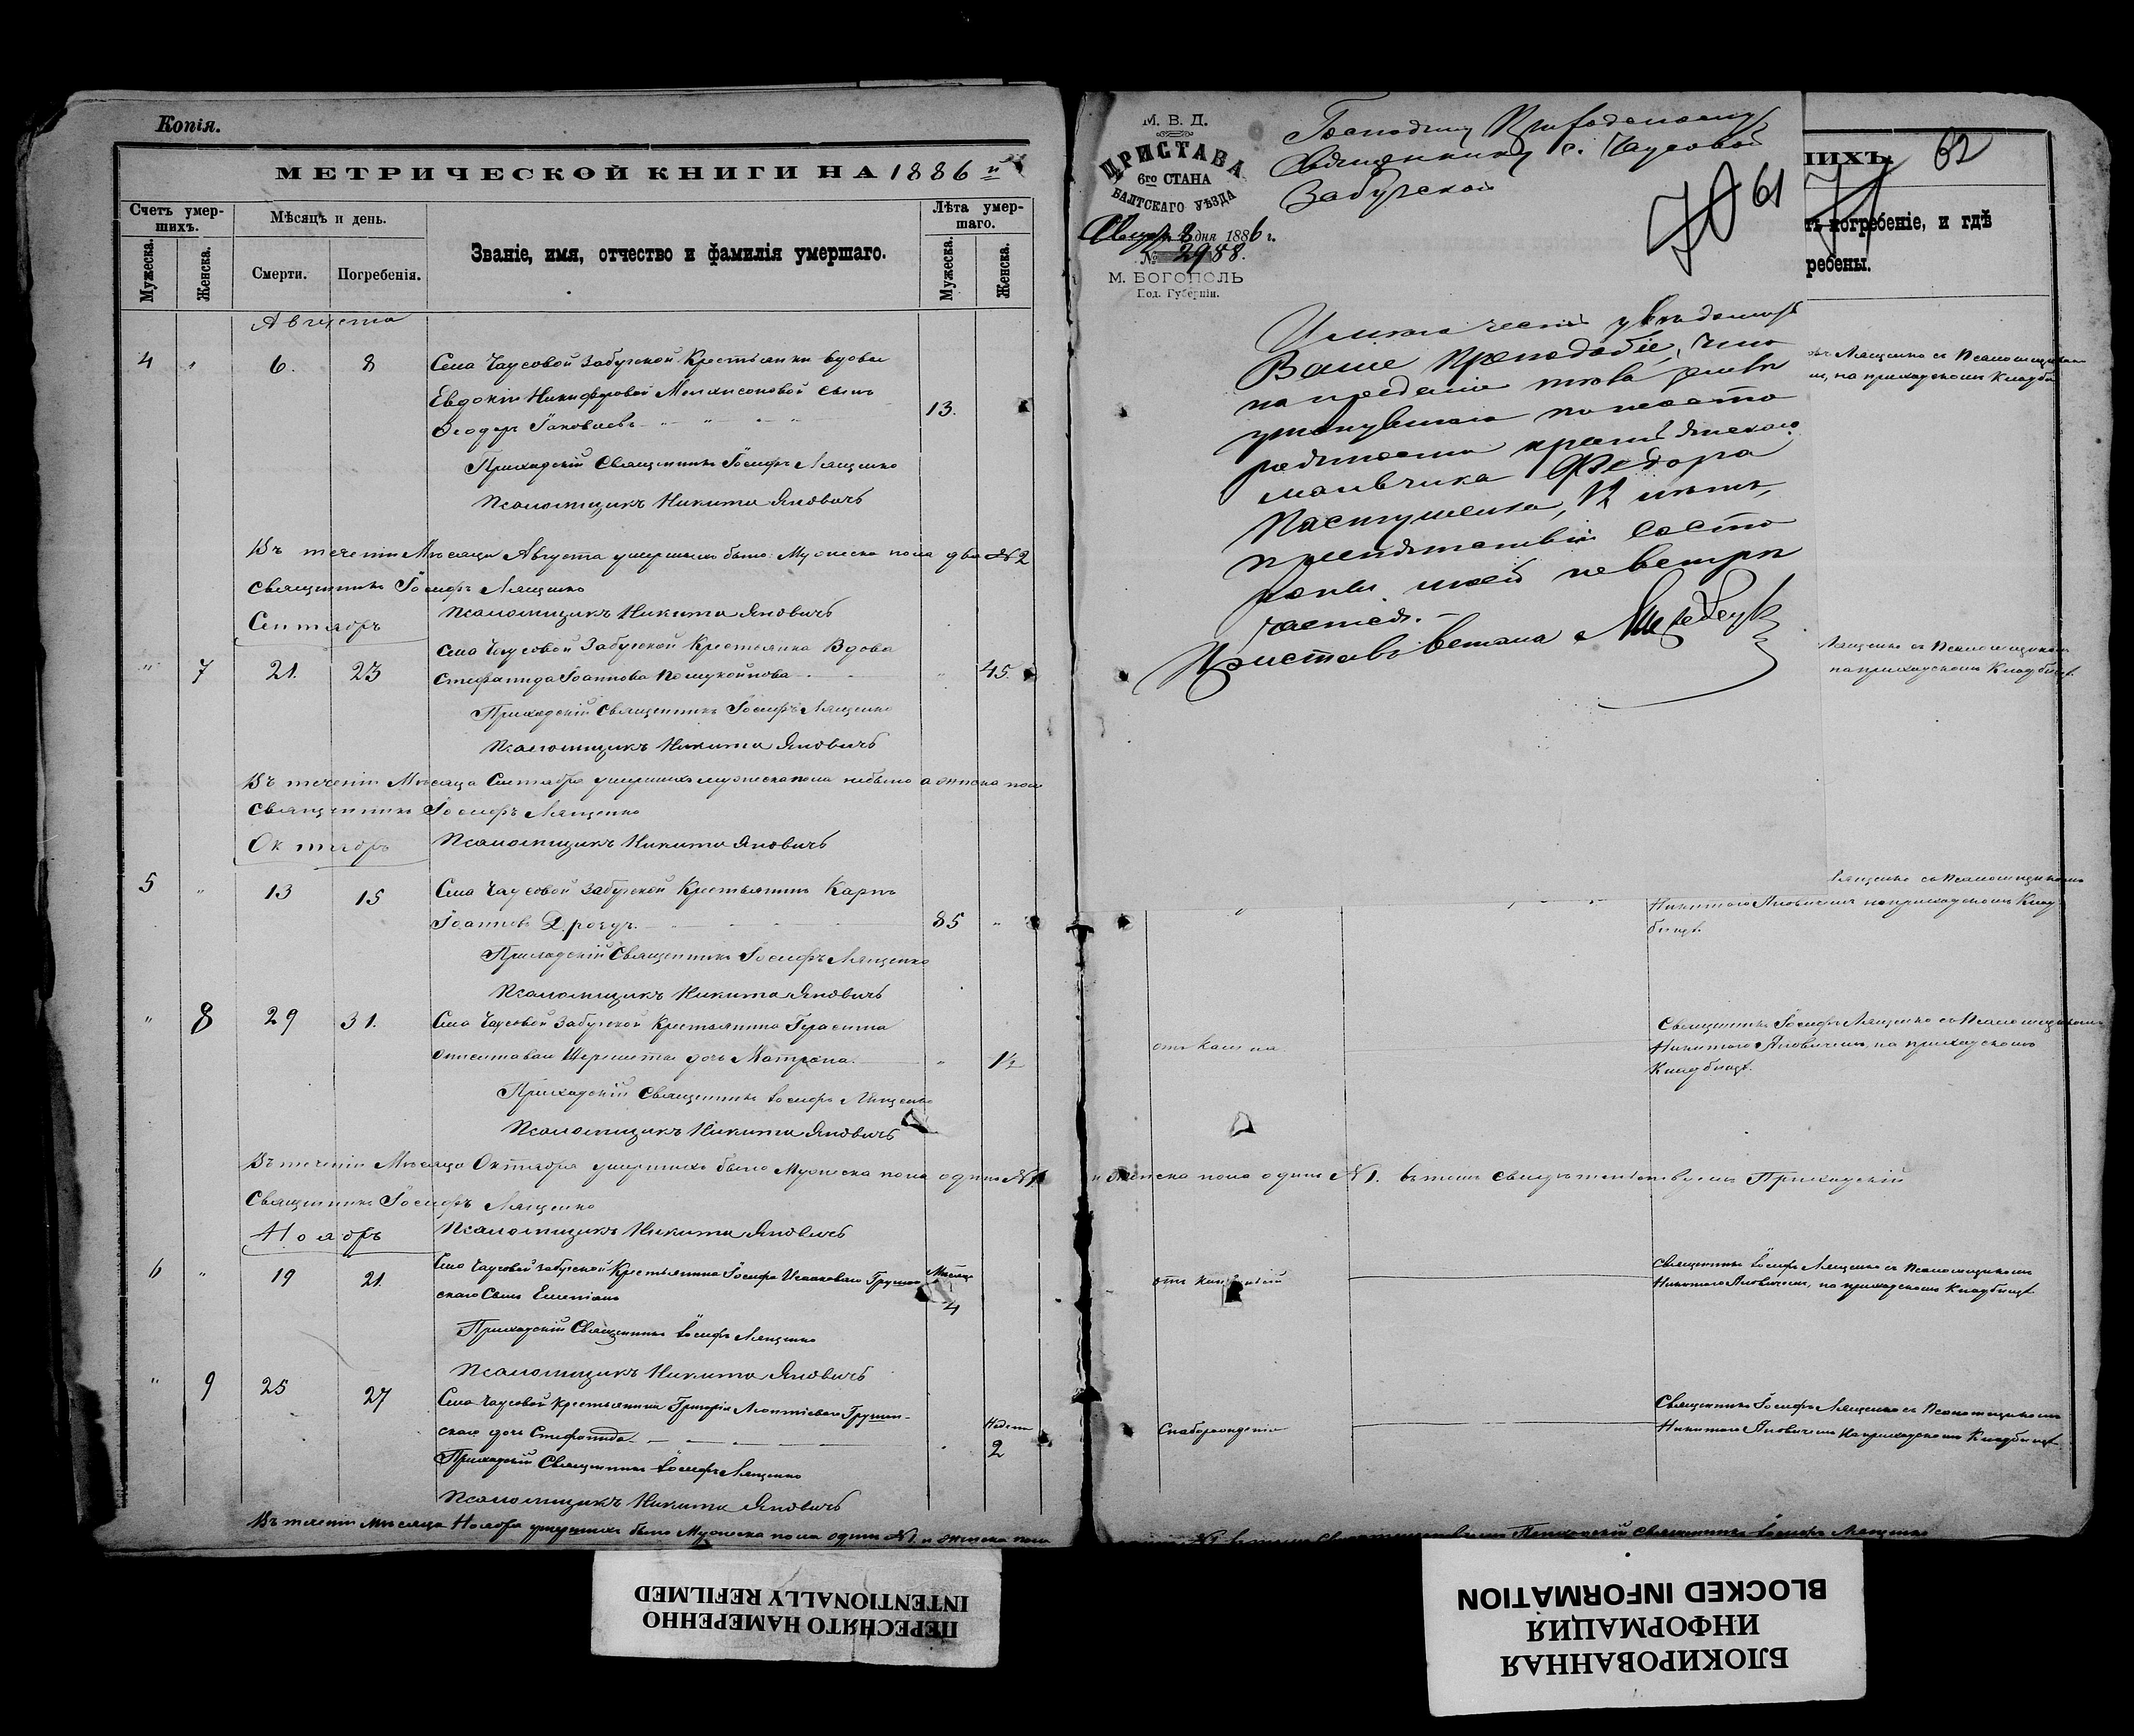 Копія.
МЕТРИЧЕСКОЙ КНИГИ НА 1886 й
Счетъ умер-
шихъ.
Мѣсяцъ и день.
Званіе, имя, отчество и фамилія умершаго.
Лѣта умер-
шаго.
Мужеска.
Женска.
Смерти.
Погребенія.
Мужеска.
Женска.
Августа
4 " 6. 8 Села Чаусовой Забугской Крестьянки вдовы
Евдокіи Никифоровой сынъ
Ѳеодоръ Іаковлевъ 13.
Приходскій Священникъ Іосифъ Лященко
Псаломщикъ Никита Яновичъ
Въ теченіи Мѣсяца Августа умершихъ было: Мужеска пола два №2
Священникъ Іосифъ Лященко
Псаломщикъ Никита Яновичъ
Сентябрь
" 7 21. 23 Села Чаусовой Забугской Крестьянка Вдова
Стефанида Іоаннова " 45.
Приходскій Священникъ Іосифъ Лященко
Псаломщикъ Никита Яновичъ
Въ теченіи Мѣсяца Сентября умершихъ мужеска пола небыло а женска пола
Священникъ Іосифъ Лященко
Псаломщикъ Никита Яновичъ
Октябрь
5 " 13 15 Села Чаусовой Забугской Крестьянинъ Карпъ
Іоанновъ Дроздъ. 85 "
Приходскій Священникъ Іосифъ Лященко
Псаломщикъ Никита Яновичъ
" 8 29 31. Села Чаусовой Забугской Крестьянина Герасима
дочь Матрона. " 1½
Приходскій Священникъ Іосифъ Лященко
Псаломщикъ Никита Яновичъ
Въ теченіи Мѣсяца Октября умершихъ было Мужеска пола одинъ №1
Священникъ Іосифъ Лященко
Псаломщикъ Никита Яновичъ
Ноябрь
6 " 19 21. Села Чаусовой Забугской Крестьянина Іосифа Исааковаго Грушев-
скаго Сынъ Емеліанъ Мѣсяц 4
Приходскій Священникъ Іосифъ Лященко
Псаломщикъ Никита Яновичъ
" 9 25 27 Села Чаусовой Крестьянина Григорія Леонтіеваго Грушев-
скаго дочь Стефанида Недел 2
Приходскій Священникъ Іосифъ Лященко
Псаломщикъ Никита Яновичъ
Въ теченіи мѣсяца Ноября умершихъ было Мужеска пола одинъ №1. и женска пола
М. В. Д.
ПРИСТАВА
6го СТАНА
БАЛТСКАГО УѢЗДА
8 дня 1886 г.
№ 2988.
М. БОГОПОЛЬ
Под. Губерніи.
Господину Приходскому
Священнику с. Чаусовой
Забугской
70 61
ШИХЪ. 71 62
погребеніе, и гдѣ
ребены.
Имѣю честь увѣдомить
Ваше Преподобіе, что
на преданіе тѣла землѣ
утонувшаго по неосто
рожности крестьянскаго
мальчика Федора
Пастушенка, 12 лѣтъ,
препятствій съ сто
роны моей не встрѣ
чается.
Приставъ 6 стана
Лященко съ Псаломщикомъ
на приходскомъ Кладби
Лященко съ Псаломщикомъ
на приходскомъ Кладбищѣ.
Лященко съ Псаломщикомъ
Никитою Яновичемъ на приходскомъ Клад
бищѣ.
отъ кашля
Священникъ Іосифъ Лященко съ Псаломщикомъ
Никитою Яновичемъ, на приходскомъ
Кладбищѣ.
и женска пола одинъ №1. въ томъ свидѣтельствуемъ Приходскій
Священникъ Іосифъ Лященко съ Псаломщикомъ
Никитою Яновичемъ, на приходскомъ Кладбищѣ
Слаборожденія
Священникъ Іосифъ Лященко съ Псаломщикомъ
Никитою Яновичемъ на приходскомъ Кладбищѣ.
№1. Приходскій Священникъ Іосифъ Лященко
ПЕРЕСНЯТО НАМЕРЕННО
INTENTIONALLY REFILMED
БЛОКИРОВАННАЯ
ИНФОРМАЦИЯ
BLOCKED INFORMATION